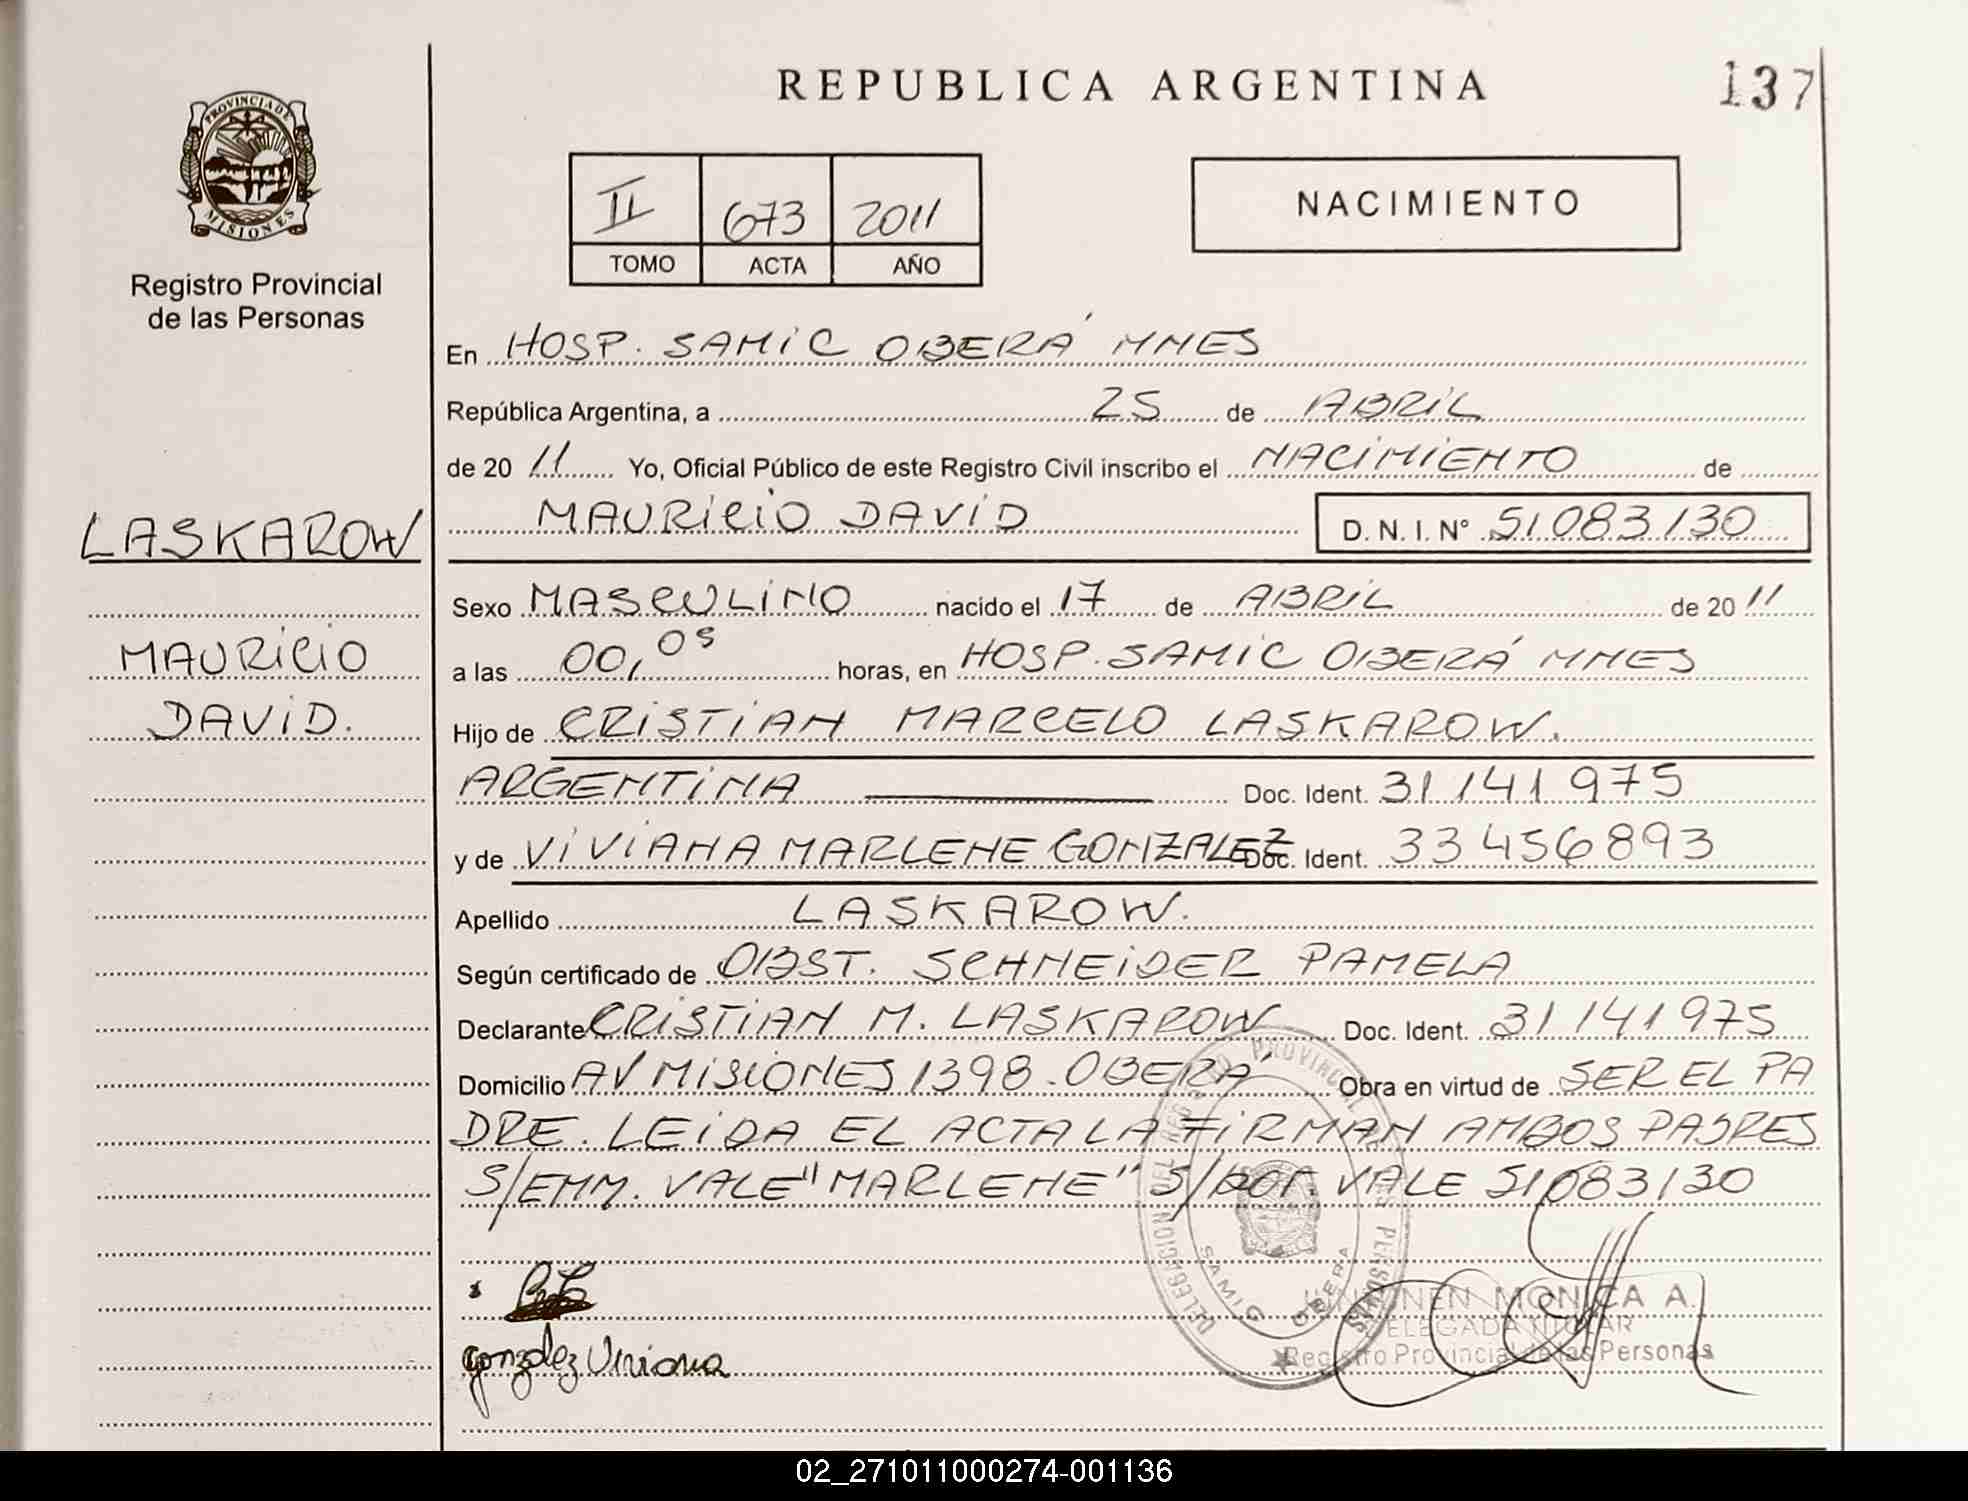 REPUBLICA ARGENTINA
137
PROVINCIA DE
MISIONES
Registro Provincial
de las Personas
II 673 2011
TOMO ACTA AÑO
NACIMIENTO
En HOSP. SAMIC OBERÁ MNES
República Argentina, a 25 de ABRIL
de 20 11 Yo, Oficial Público de este Registro Civil inscribo el NACIMIENTO de
MAURICIO DAVID D. N. I. Nº 51083130
LASKAROW
MAURICIO
DAVID.
Sexo MASCULINO nacido el 17 de ABRIL de 20 11
a las 00,05 horas, en HOSP. SAMIC OBERÁ MNES
Hijo de CRISTIAN MARCELO LASKAROW.
ARGENTINA Doc. Ident. 31141975
y de VIVIANA MARLENE GONZALEZ Doc. Ident. 33456893
Apellido LASKAROW.
Según certificado de OBST. SCHNEIDER PAMELA
Declarante CRISTIAN M. LASKAROW Doc. Ident. 31141975
Domicilio AV MISIONES 1398. OBERÁ Obra en virtud de SER EL PA
DRE. LEIDA EL ACTA LA FIRMAN AMBOS PADRES
S/EMM. VALE "MARLENE" S/ VALE 51083130
DELEGACION DEL REGISTRO PROVINCIAL DE LAS PERSONAS
SAMIC OBERA
MONICA A.
DELEGADA TITULAR
Registro Provincial de las Personas
gonzalez Viviana
02_271011000274-001136